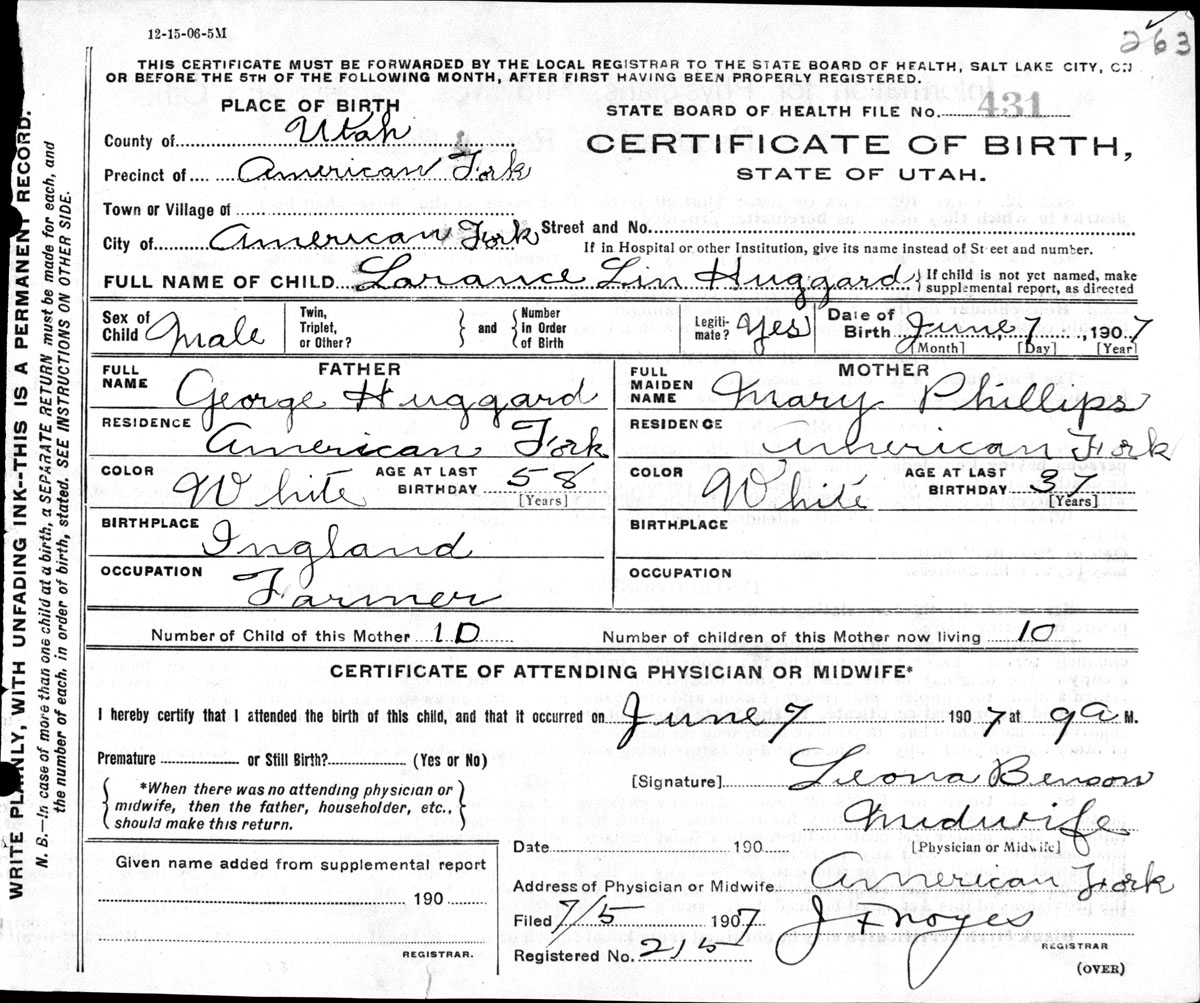 12-15-06-5M
263
THIS CERTIFICATE MUST BE FORWARDED BY THE LOCAL REGISTRAR TO THE STATE BOARD OF HEALTH, SALT LAKE CITY, ON
OR BEFORE THE 5TH OF THE FOLLOWING MONTH, AFTER FIRST HAVING BEEN PROPERLY REGISTERED.
WRITE PLAINLY, WITH UNFADING INK--THIS IS A PERMANENT RECORD.
N. B.—In case of more than one child at a birth, a SEPARATE RETURN must be made for each, and
the number of each, in order of birth, stated. SEE INSTRUCTIONS ON OTHER SIDE.
PLACE OF BIRTH
STATE BOARD OF HEALTH FILE No. 431
County of Utah
CERTIFICATE OF BIRTH,
Precinct of American Fork
STATE OF UTAH.
Town or Village of
City of American Fork Street and No.
If in Hospital or other Institution, give its name instead of Street and number.
FULL NAME OF CHILD Larance Lin Huggard { If child is not yet named, make
supplemental report, as directed
Sex of Child Male Twin, Triplet, or Other? } and { Number in Order of Birth Legiti-mate? Yes Date of Birth June 7, 1907
[Month] [Day] [Year]
FATHER MOTHER
FULL NAME George Huggard FULL MAIDEN NAME Mary Phillips
RESIDENCE American Fork RESIDENCE American Fork
COLOR White AGE AT LAST BIRTHDAY 58 [Years] COLOR White AGE AT LAST BIRTHDAY 37 [Years]
BIRTHPLACE Ingland BIRTHPLACE
OCCUPATION Farmer OCCUPATION
Number of Child of this Mother 10 Number of children of this Mother now living 10
CERTIFICATE OF ATTENDING PHYSICIAN OR MIDWIFE*
I hereby certify that I attended the birth of this child, and that it occurred on June 7 1907 at 9 a M.
Premature or Still Birth? (Yes or No)
[Signature] Leona Benson
{ *When there was no attending physician or
midwife, then the father, householder, etc.,
should make this return. }
Midwife
Date 190 [Physician or Midwife]
Given name added from supplemental report
190
REGISTRAR.
Address of Physician or Midwife American Fork
Filed 7/5 1907 J F Noyes
Registered No. 215 REGISTRAR
(OVER)